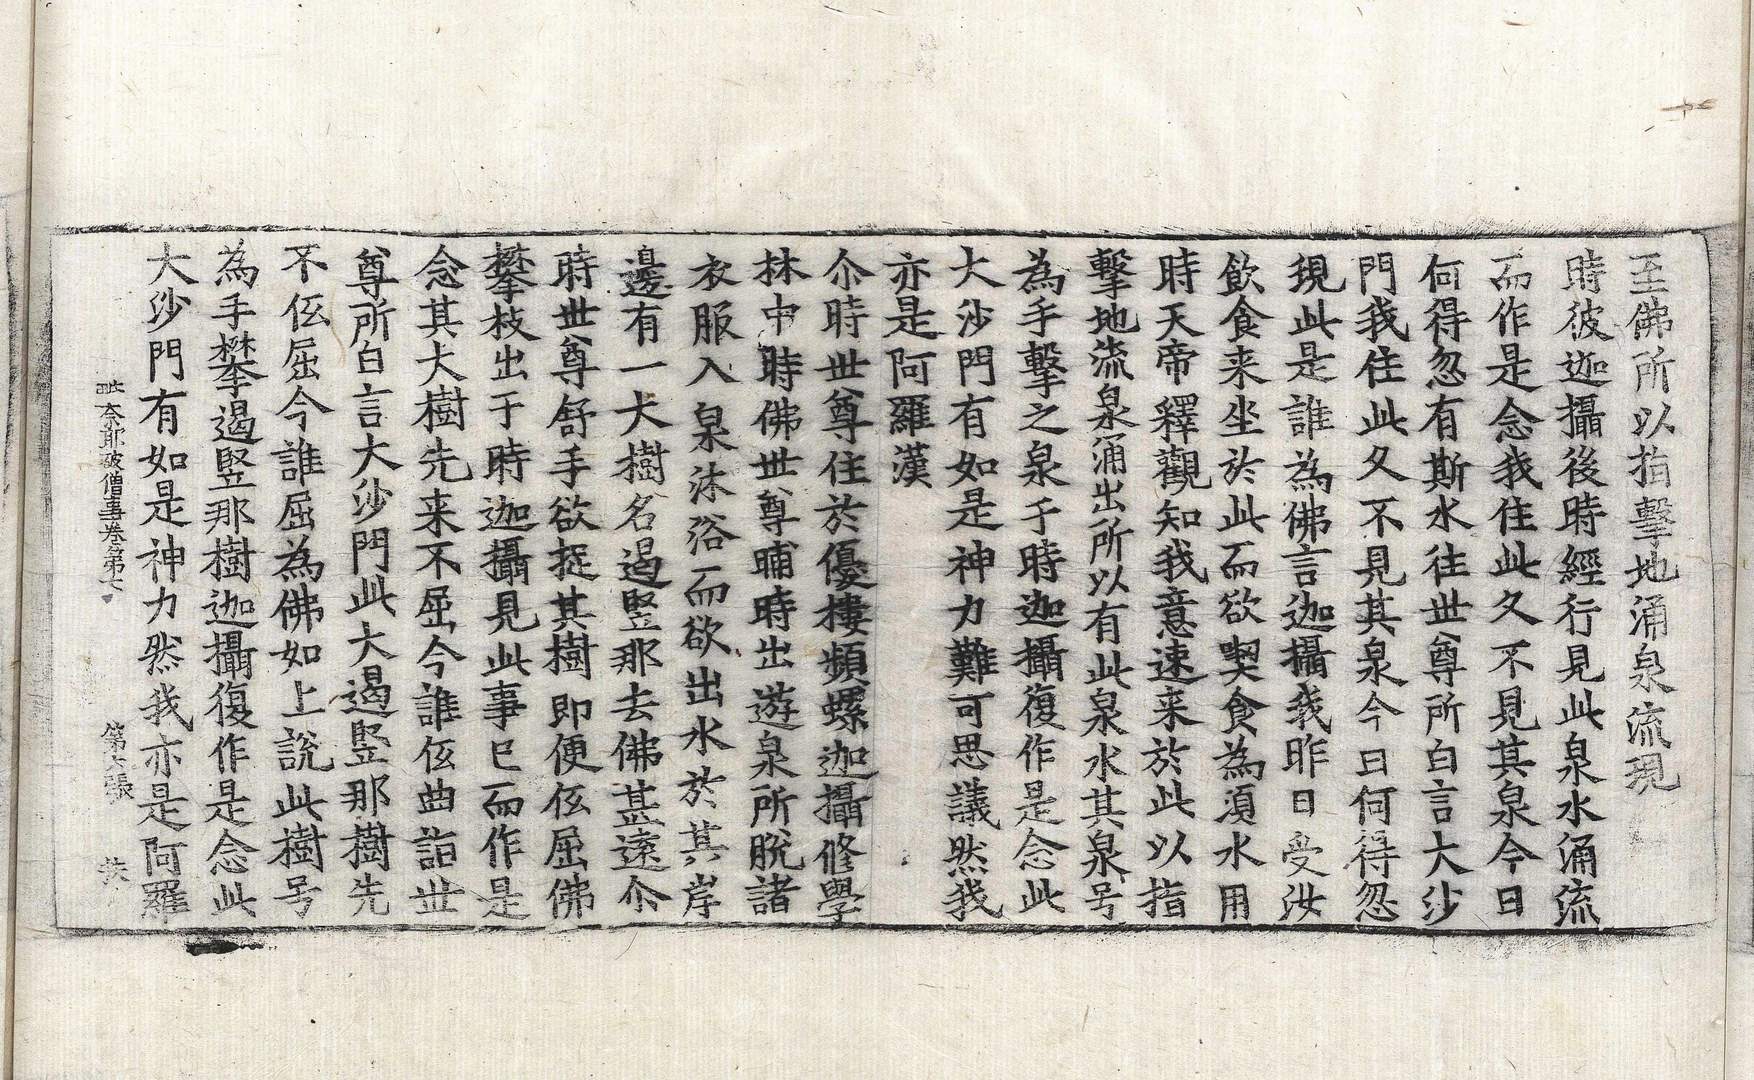 至佛所以指擊地涌泉流現
時彼迦攝後時經行見此泉水涌流
而作是念我住此久不見其泉今日
何得忽有斯水往世尊所白言大沙
門我住此久不見其泉今日何得忽
現此是誰為佛言迦攝我昨日受汝
飲食来坐於此而欲喫食為湏水用
時天帝釋觀知我意速来於此以指
擊地流泉涌出所以有此泉水其泉号
為手擊之泉于時迦攝復作是念此
大沙門有如是神力難可思議然我
亦是阿羅漢
尒時世尊住於優樓頻螺迦攝修學
林中時佛世尊晡時出遊泉所脫諸
衣服入泉沐浴而欲出水於其岸
邊有一大樹名遏竪那去佛甚遠尒
時世尊舒手欲捉其樹即便伍屈佛
攀枝出于時迦攝見此事已而作是
念其大樹先来不屈今誰伍曲詣世
尊所白言大沙門此大遏竪那樹先
不伍屈今誰屈為佛如上說此樹号
為手攀遏竪那樹迦攝復作是念此
大沙門有如是神力然我亦是阿羅
奈耶破僧事卷第七 第六張